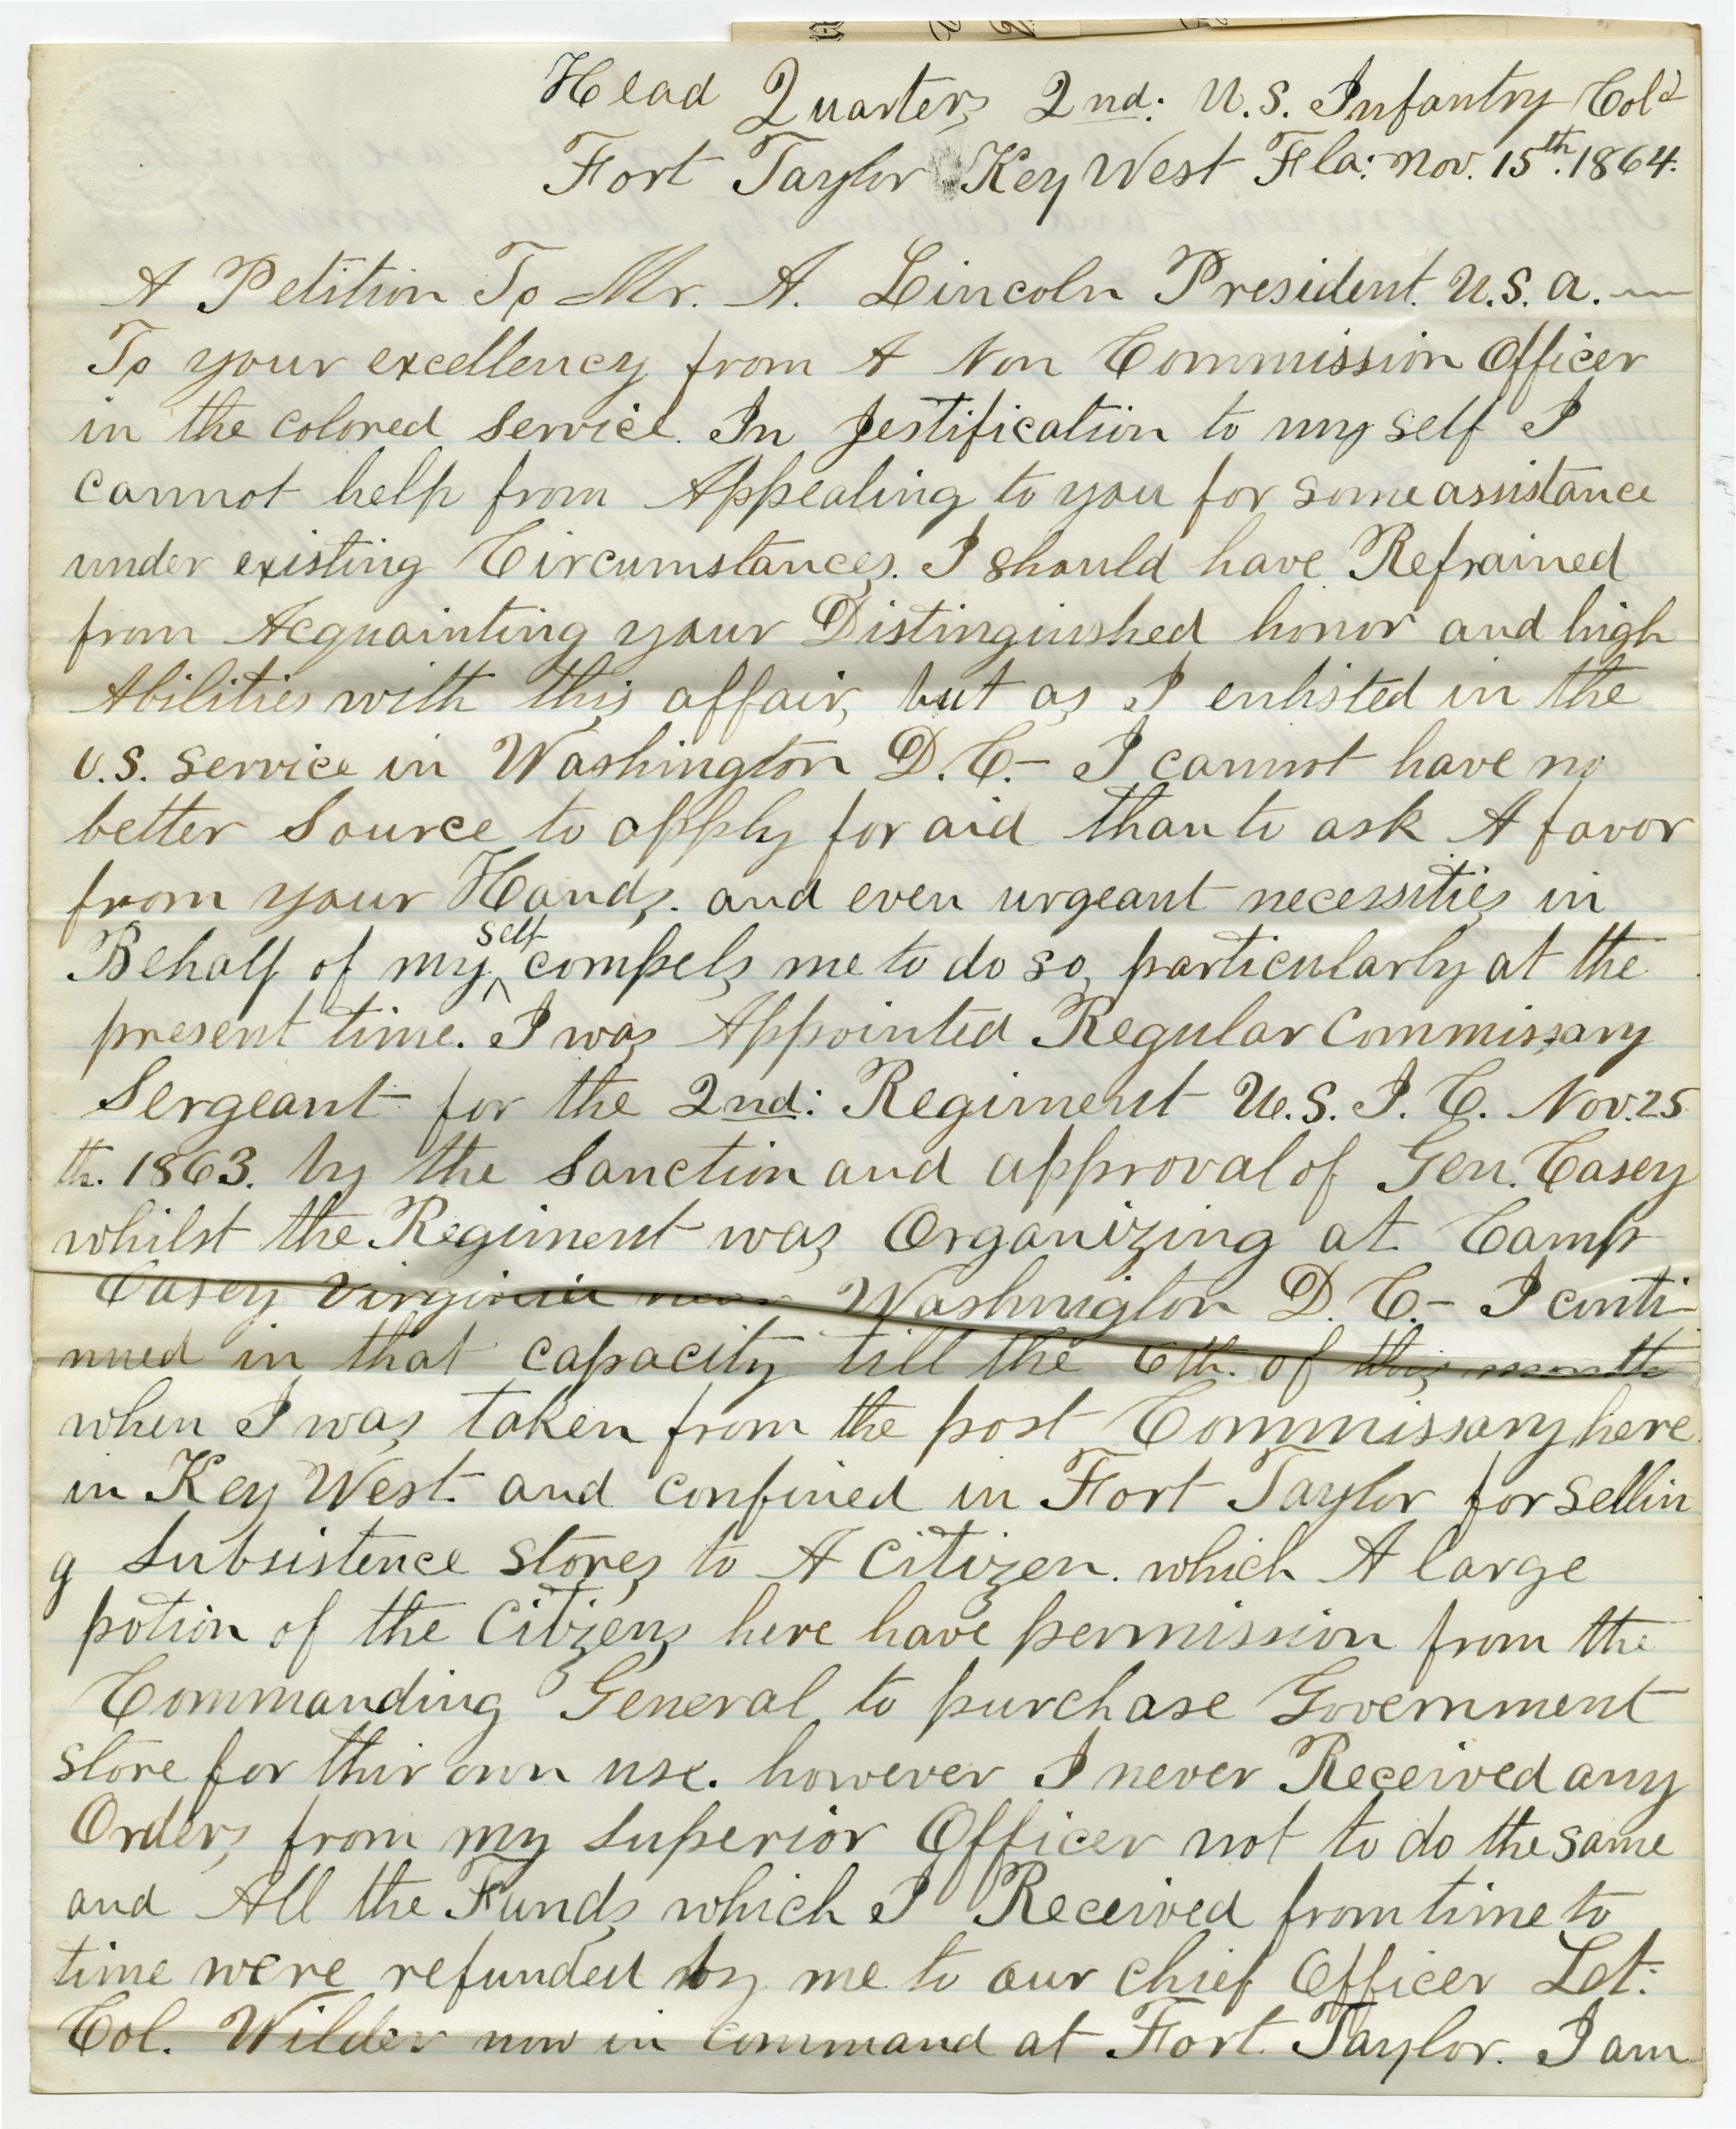 Head Quarters 2nd: U.S. Infantry Col'd
Fort Taylor Key West Fla: Nov. 15th. 1864.
A Petition To Mr. A. Lincoln President. U.S.A.
To your excellency from A Non Commission Officer
in the colored service. In Jestification to my self I
cannot help from Appealing to you for some assistance
under existing Circumstances. I should have Refrained
from Acquainting your Distinguished honor and high
Abilities with this affair, but as I enlisted in the
U.S. service in Washington D.C.- I cannot have no
better Source to apply for aid than to ask A favor
from your Hands. and even urgeant necessities in
Behalf of my ^self compels me to do so, particularly at the
present time. I was Appointed Regular Commissary
Sergeant for the 2nd: Regiment U.S. I. C. Nov. 25
th. 1863. by the Sanction and approval of Gen. Casey
whilst the Regiment was Organizing at Camp
Casey Virginia near Washington D.C.- I conti-
nued in that capacity till the 6th. of this month
when I was taken from the post Commissary here
in Key West. and confined in Fort Taylor for sellin
g Subsistence stores to A citizen. which A large
potion of the Citizens here have permission from the
Commanding General to purchase Government
store for thir own use. however I never Received any
Orders from my Superior Officer not to do the same
and All the Funds which I Received from time to
time were refunded by me to our chief Officer Let:
Col. Wilder now in command at Fort Taylor. I am